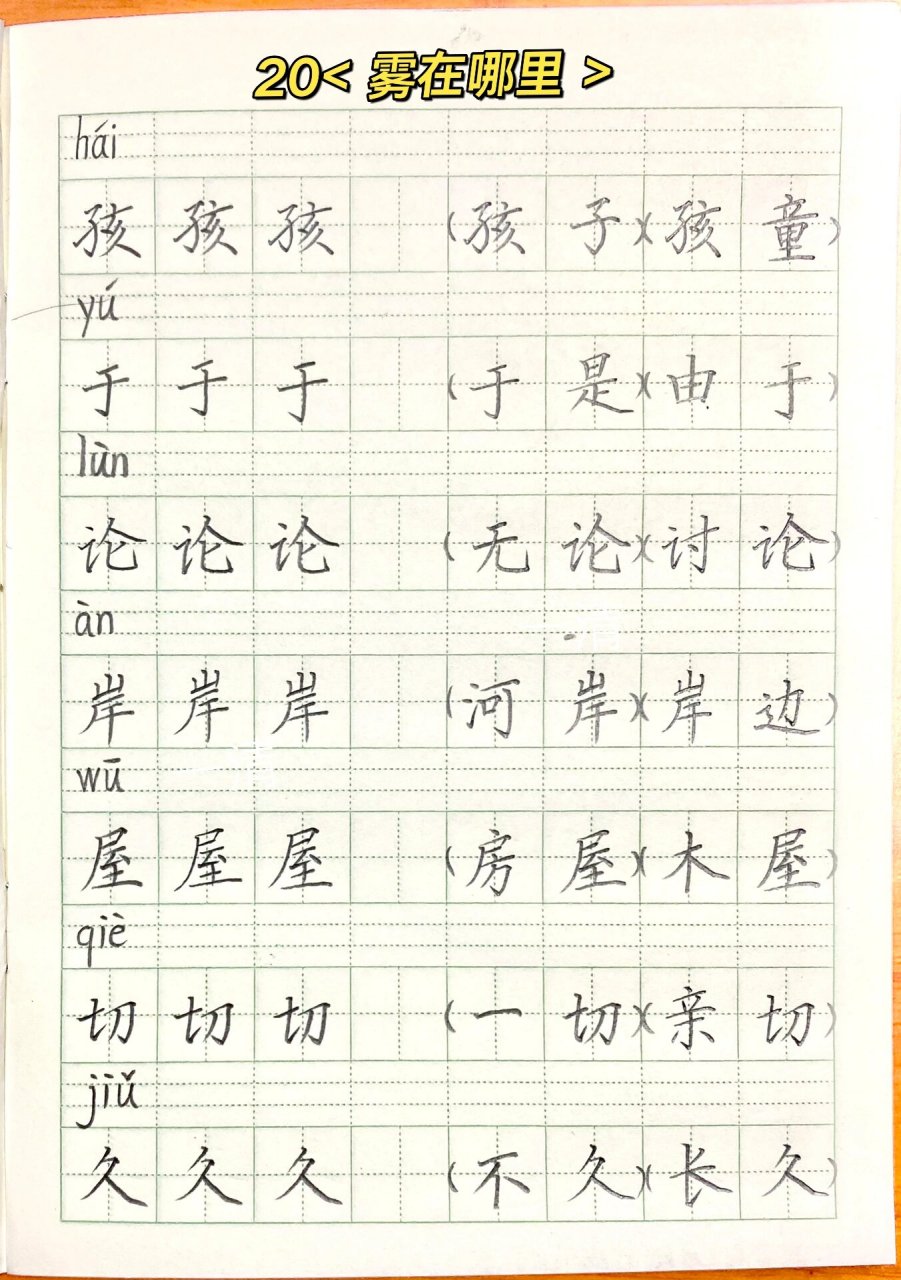 20< 雾在哪里 >
hái
孩 孩 孩 (孩 子)(孩 童)
yú
于 于 于 (于 是)(由 于)
lùn
论 论 论 (无 论)(讨 论)
àn
岸 岸 岸 (河 岸)(岸 边)
wū
屋 屋 屋 (房 屋)(木 屋)
qiè
切 切 切 (一 切)(亲 切)
jiǔ
久 久 久 (不 久)(长 久)